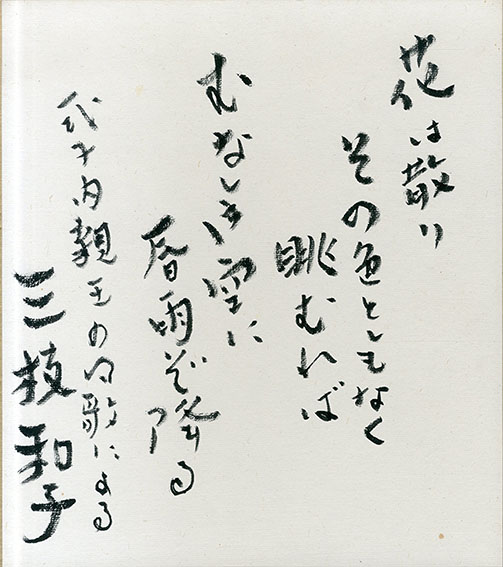 花は散り
その色ともなく
眺むれば
むなしき空に
春雨ぞ降る
式子内親王の御歌による
三枝和子